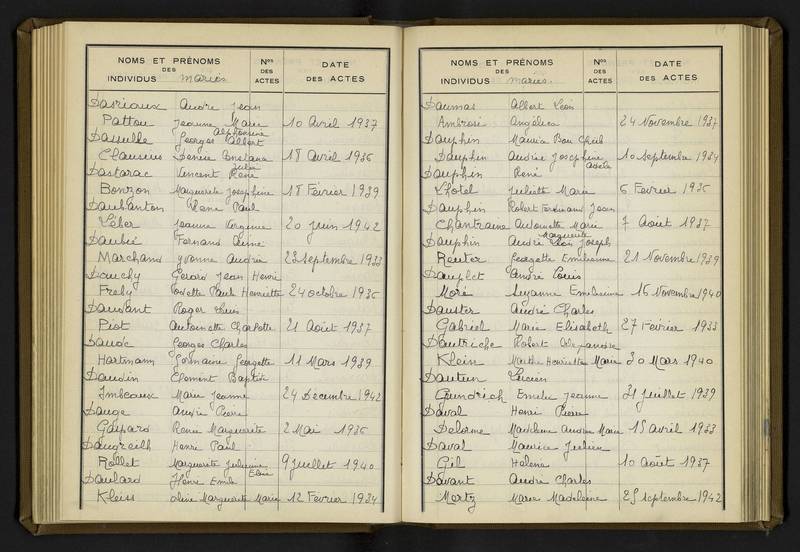 NOMS ET PRÉNOMS
DES
INDIVIDUS mariés
Nos
DES
ACTES
DATE
DES ACTES
Dasriaux André Jean
Pattou Jeanne Marie 10 Avril 1937
Alphonsine
Dasseille Georges Albert
Clausius Denise Constana 18 Avril 1936
Julien
Dastarac Vincent René
Bonzon Marguerite Josephine 18 Février 1939
Daubanton René Paul
Léber Jeanne Virginie 20 juin 1942
Daubié Fernand Aimé
Marchand Yvonne Andrée 23 septembre 1933
Dauchy Gérard Jean Henri
Frely Odette Paule Henriette 24 octobre 1936
Daudant Roger Louis
Piot Antoinette Charlotte 21 Août 1937
Daudé Georges Charles
Hartmann Germaine Georgette 11 Mars 1939
Daudin Clément Baptiste
Imbeaux Marie Jeanne 24 Décembre 1942
Dauge André Pierre
Gaspard Renée Marguerite 2 Mai 1936
Daugreilh Henri Paul
Rollet Marguerite Julienne 9 juillet 1940
Elvie
Daulard Henri Emile
Kleiss Aline Marguerite Marie 12 Février 1934
NOMS ET PRÉNOMS
DES
INDIVIDUS mariés
Nos
DES
ACTES
DATE
DES ACTES
Daumas Albert Léon
Ambrosi Angélica 24 Novembre 1937
Dauphin Maurice
Dauphin Andrée Josephine 10 Septembre 1934
Adèle
Dauphin René
Lhotel Juliette Marie 6 Février 1936
Dauphin Robert Ferdinand Jean
Chantraine Antoinette Marie 7 Août 1937
Marguerite
Dauphin André Léon Joseph
Reuter Georgette Emilienne 21 Novembre 1939
Dauplet André Louis
Moré Suzanne Emilienne 16 Novembre 1940
Dauster André Charles
Gabriel Marie Elisabeth 27 Février 1933
Dautriche Robert Alexandre
Klein Marthe Henriette Marie 30 Mars 1940
Dauteur Lucien
Gundrich Emilie Jeanne 31 juillet 1939
Daval Henri Pierre
Delorme Madeleine Andrée Marie 15 avril 1933
Daval Maurice Julien
Gil Helena 10 août 1937
Davant André Charles
Mertz Marie Madeleine 25 septembre 1942